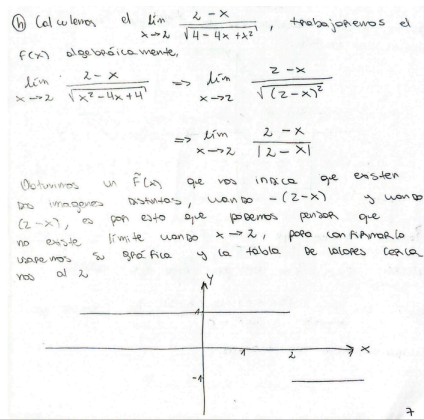 (h) Calculemos el lím x→2 2-x / √4-4x+x² , trabajaremos el
F(x) algebráicamente,
lím x→2 2-x / √x²-4x+4 => lím x→2 2-x / √(2-x)²
=> lím x→2 2-x / |2-x|
Obtuvimos un F̃(x) qe nos indica qe existen
dos imagenes distintas, cuando -(2-x) y cuando
(2-x), es por esto qe podemos pensar qe
no existe límite cuando x→2, para confirmarlo
usaremos su gráfica y la tabla de valores cerca
nos al 2
Y
1
1 2 X
-1
7